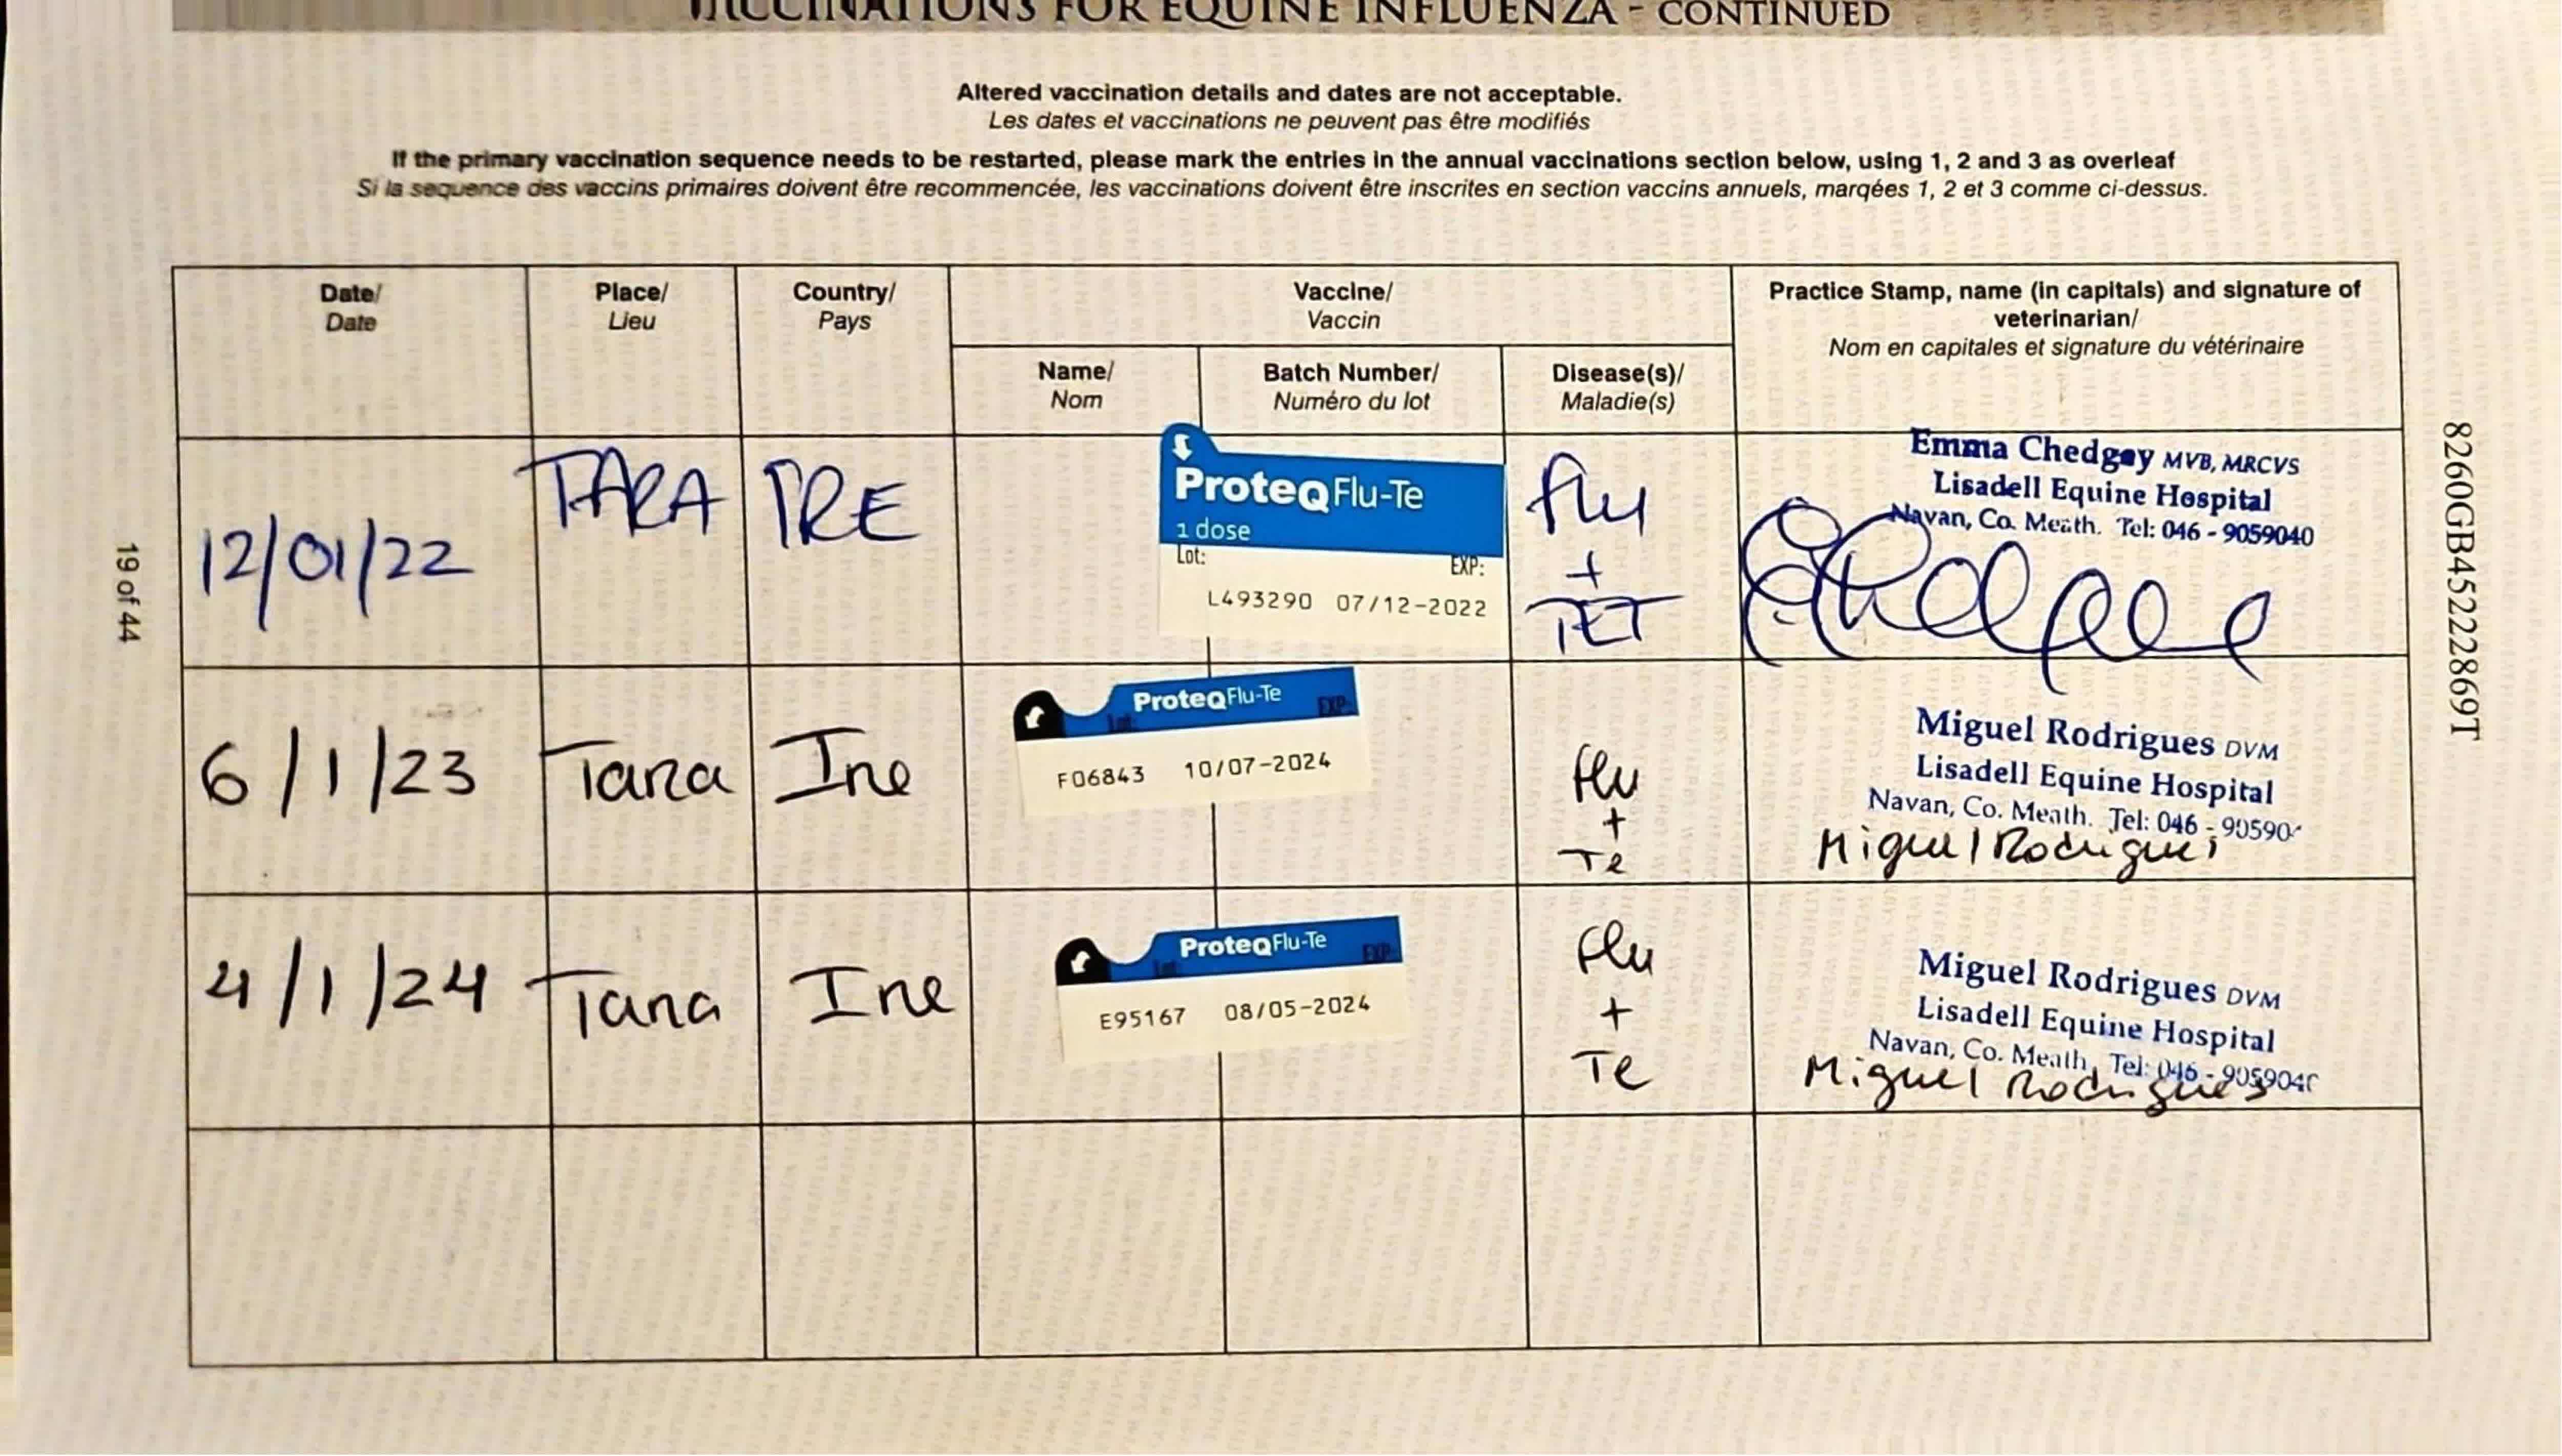 VACCINATIONS FOR EQUINE INFLUENZA - CONTINUED
Altered vaccination details and dates are not acceptable.
Les dates et vaccinations ne peuvent pas être modifiés
If the primary vaccination sequence needs to be restarted, please mark the entries in the annual vaccinations section below, using 1, 2 and 3 as overleaf
Si la sequence des vaccins primaires doivent être recommencée, les vaccinations doivent être inscrites en section vaccins annuels, marqées 1, 2 et 3 comme ci-dessus.
Date/
Date
Place/
Lieu
Country/
Pays
Vaccine/
Vaccin
Name/
Nom
Batch Number/
Numéro du lot
Disease(s)/
Maladie(s)
Practice Stamp, name (in capitals) and signature of
veterinarian/
Nom en capitales et signature du vétérinaire
12/01/22
TARA
IRE
ProteqFlu-Te
1 dose
Lot: EXP:
L493290 07/12-2022
flu
+
TET
Emma Chedgey MVB, MRCVS
Lisadell Equine Hospital
Navan, Co. Meath. Tel: 046 - 9059040
6/1/23
Tara
Ire
ProteqFlu-Te
Lot: EXP:
F06843 10/07-2024
flu
+
Te
Miguel Rodrigues DVM
Lisadell Equine Hospital
Navan, Co. Meath. Tel: 046 - 90590
Miguel Rodrigues
4/1/24
Tara
Ire
ProteqFlu-Te
Lot: EXP:
E95167 08/05-2024
flu
+
Te
Miguel Rodrigues DVM
Lisadell Equine Hospital
Navan, Co. Meath. Tel: 046 - 9059040
Miguel Rodrigues
19 of 44
8260GB45222869T